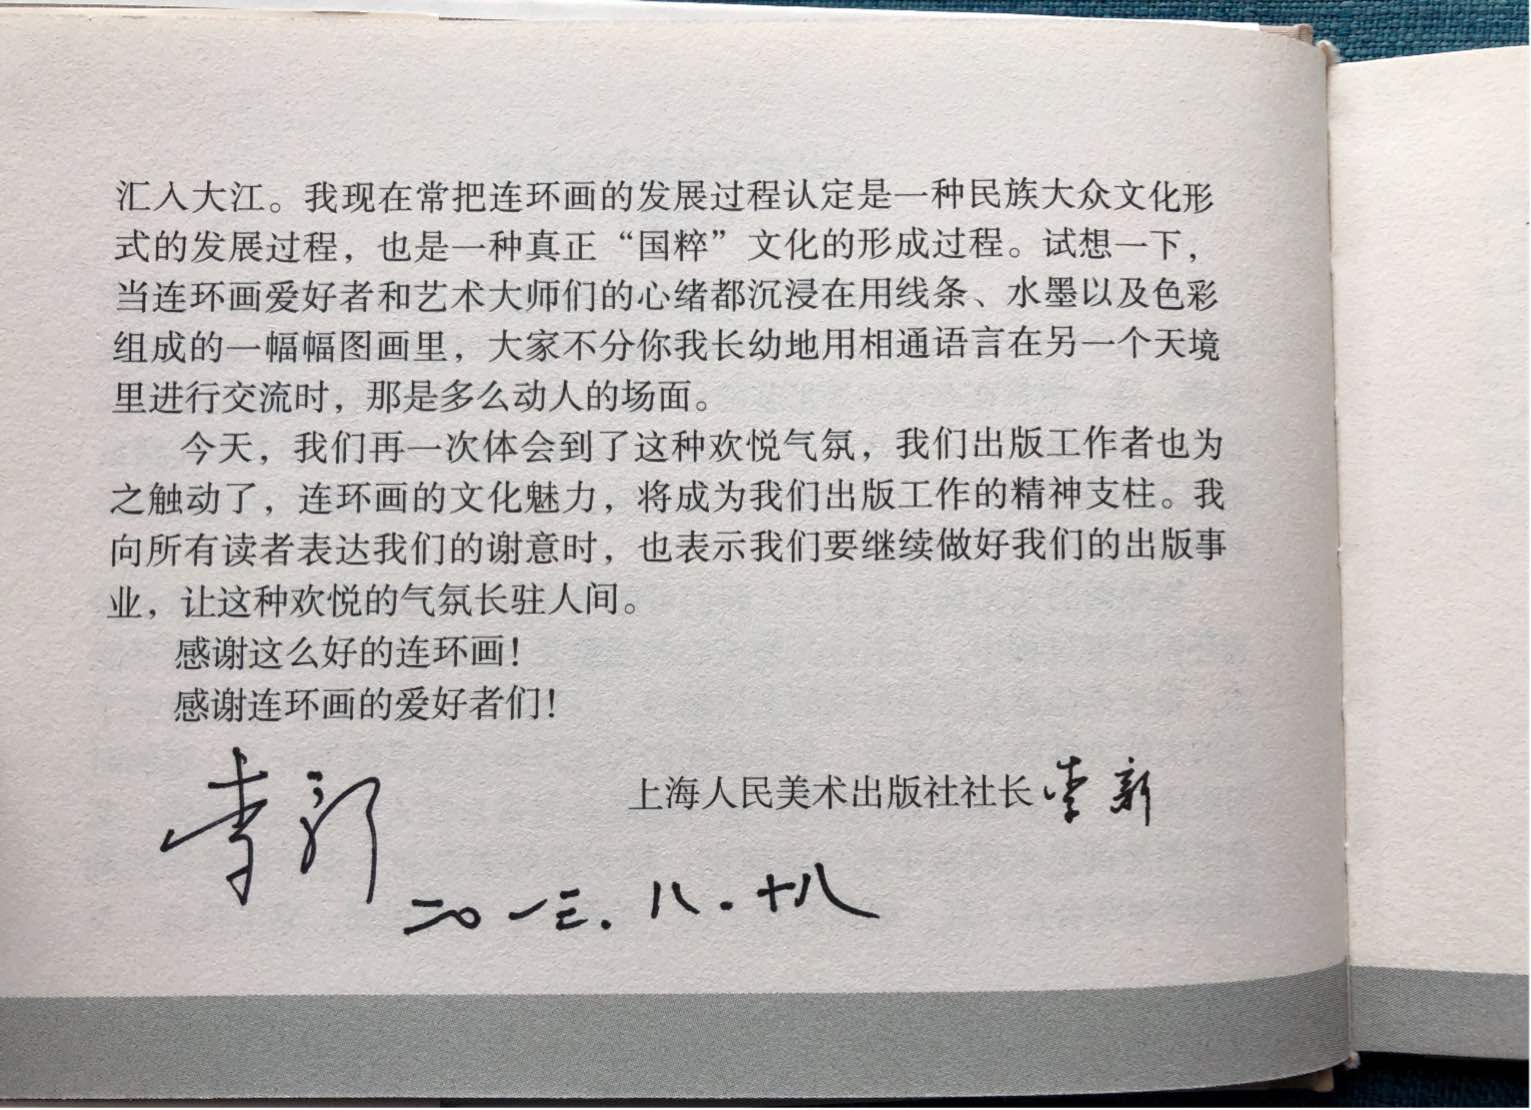 汇入大江。我现在常把连环画的发展过程认定是一种民族大众文化形
式的发展过程，也是一种真正“国粹”文化的形成过程。试想一下，
当连环画爱好者和艺术大师们的心绪都沉浸在用线条、水墨以及色彩
组成的一幅幅图画里，大家不分你我长幼地用相通语言在另一个天境
里进行交流时，那是多么动人的场面。
今天，我们再一次体会到了这种欢悦气氛，我们出版工作者也为
之触动了，连环画的文化魅力，将成为我们出版工作的精神支柱。我
向所有读者表达我们的谢意时，也表示我们要继续做好我们的出版事
业，让这种欢悦的气氛长驻人间。
感谢这么好的连环画！
感谢连环画的爱好者们！
上海人民美术出版社社长李新
李新
二〇一三.八.十八